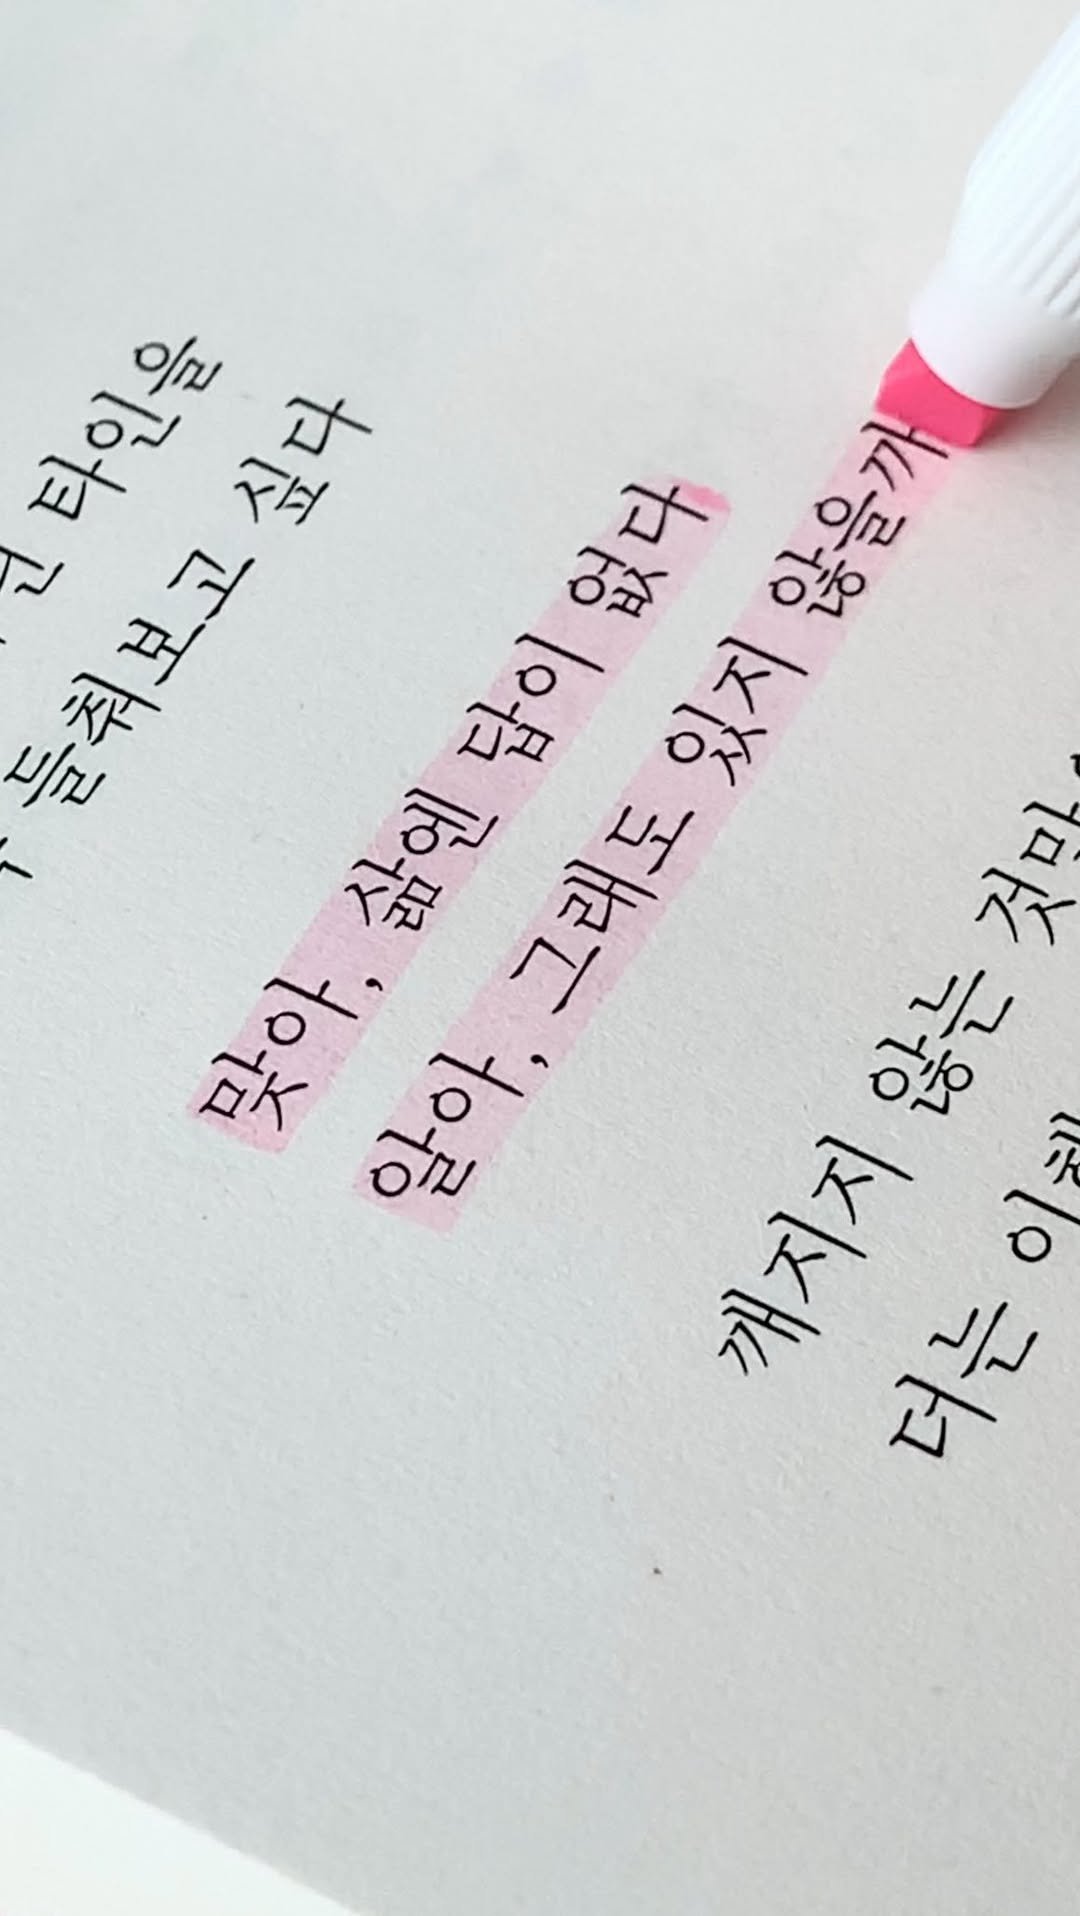 타인을
들춰보고 싶다
맞아, 삶엔 답이 없다
알아, 그래도 있지 않을까
깨지지 않는
더는